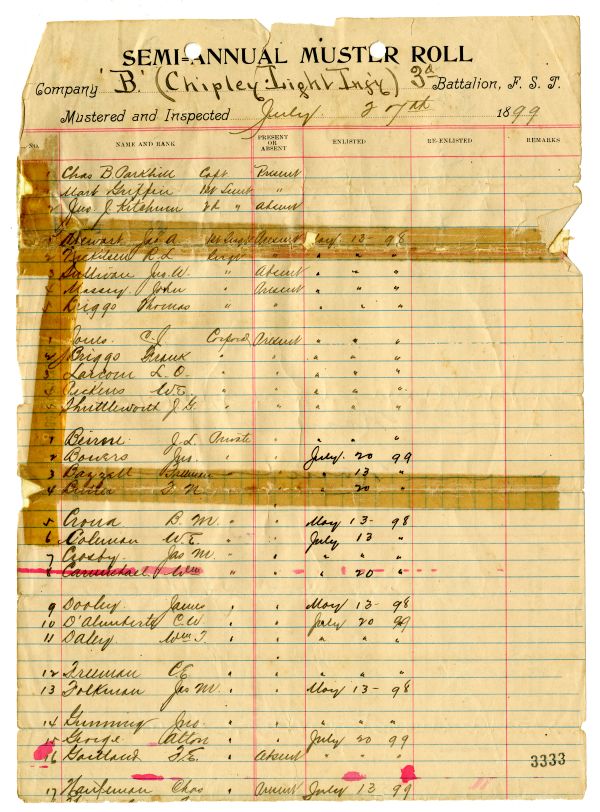 SEMI-ANNUAL MUSTER ROLL
Company 'B' (Chipley Light Inf'y) 3d Battalion, F. S. T.
Mustered and Inspected July 27th 1899
NO. NAME AND RANK PRESENT OR ABSENT ENLISTED RE-ENLISTED REMARKS
1 Chas B. Parkhill Capt Present
Mark Griffin 1st Lieut "
2 Jno. J. Kitchum 2d " Absent
Stewart Jas A 1st Sergt Present May 13-98
2 R. L. Sergt " " " "
3 Sullivan Jno. W. " Absent " " "
4 Massey John " Present " " "
5 Briggs Thomas " " " " "
1 Jones C. J. Corporal Present " " "
2 Briggs Frank " " " " "
3 L. O. " " " " "
4 Pickens W. E. " " " " "
5 Shuttleworth J. G. " " " " "
1 Beirne J. L. Private " " " "
2 Bowers Jno. " " July 20 99
3 Bazzell " " " 13 "
4 Butler " " " 20 "
5 Croud B. M. " " May 13-98
6 Coleman W. E. " " July 13 "
7 Crosby Jas M. " " " " "
8 Carmichael Wm " " " 20 "
9 Dooley James " " May 13-98
10 D'Alemberte C. W " " July 20 99
11 Daley Wm T. " " " " "
12 Freeman C. E " " " " "
13 Folkman Jas M. " " May 13-98
14 Gunning Jno. " " " " "
15 George Alton " " July 20 99
16 Gartland F. E. " Absent " " "
3333
17 Chas " Present July 13 99